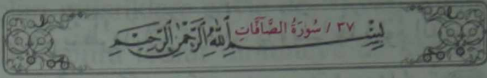 ٣٧ / سُورَةُ الصَّافَّاتِ
بِسْمِ اللَّهِ الرَّحْمَٰنِ الرَّحِيمِ